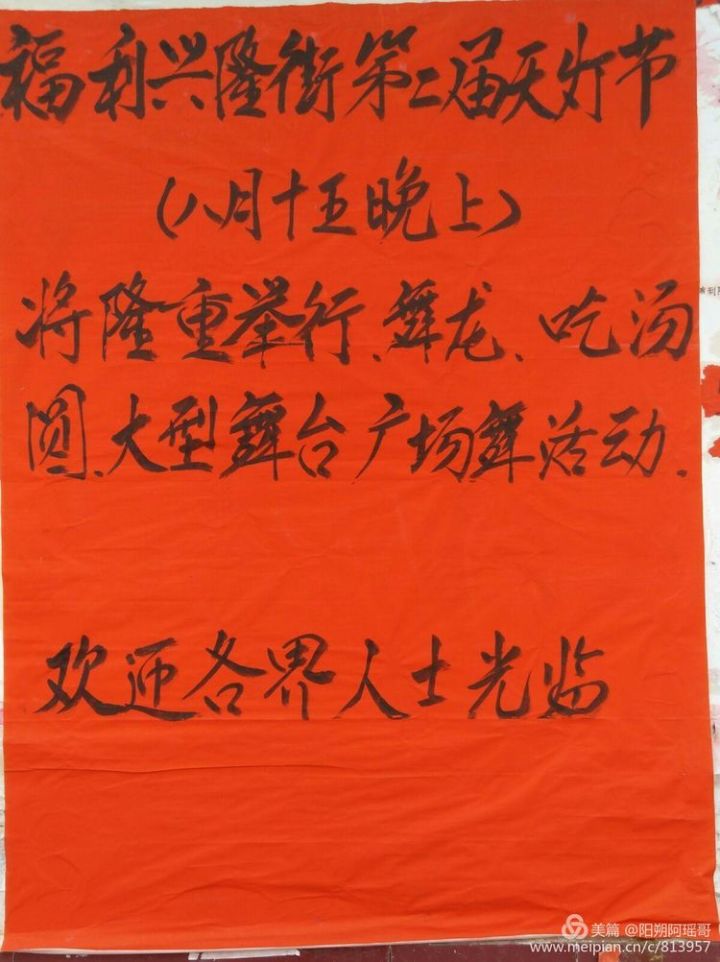 福利兴隆街第二届天灯节
(八月十五晚上)
将隆重举行、舞龙、吃汤
圆、大型舞台广场舞活动.
欢迎各界人士光临
美篇 @阳朔阿瑶哥
www.meipian.cn/c/813957